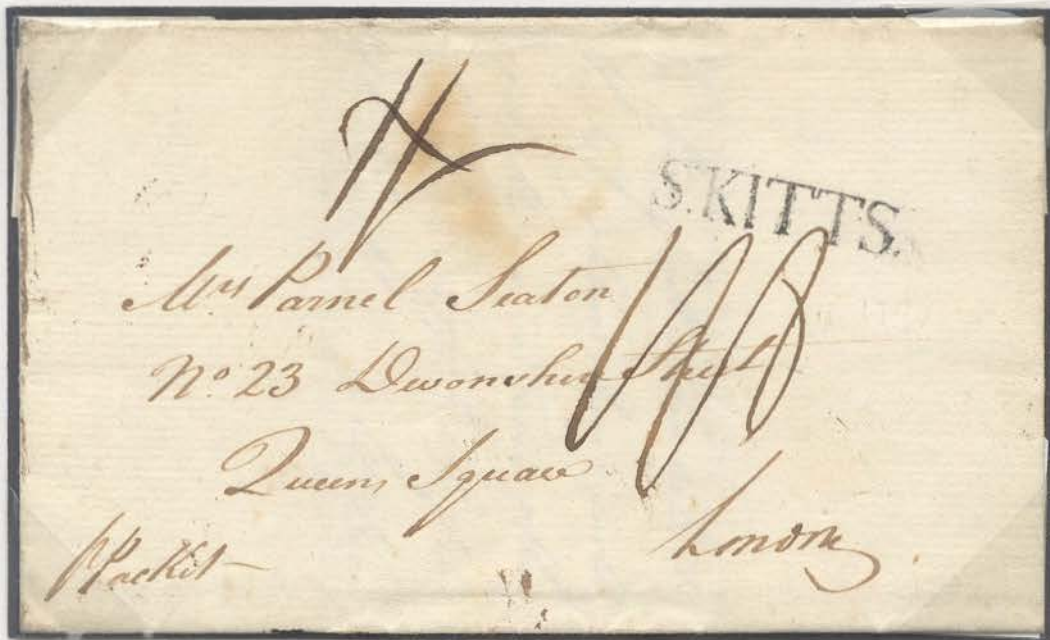 S.KITTS.
Mrs Parnel Seaton
No. 23 Devonshire Street
Queen Square
London
p Packet